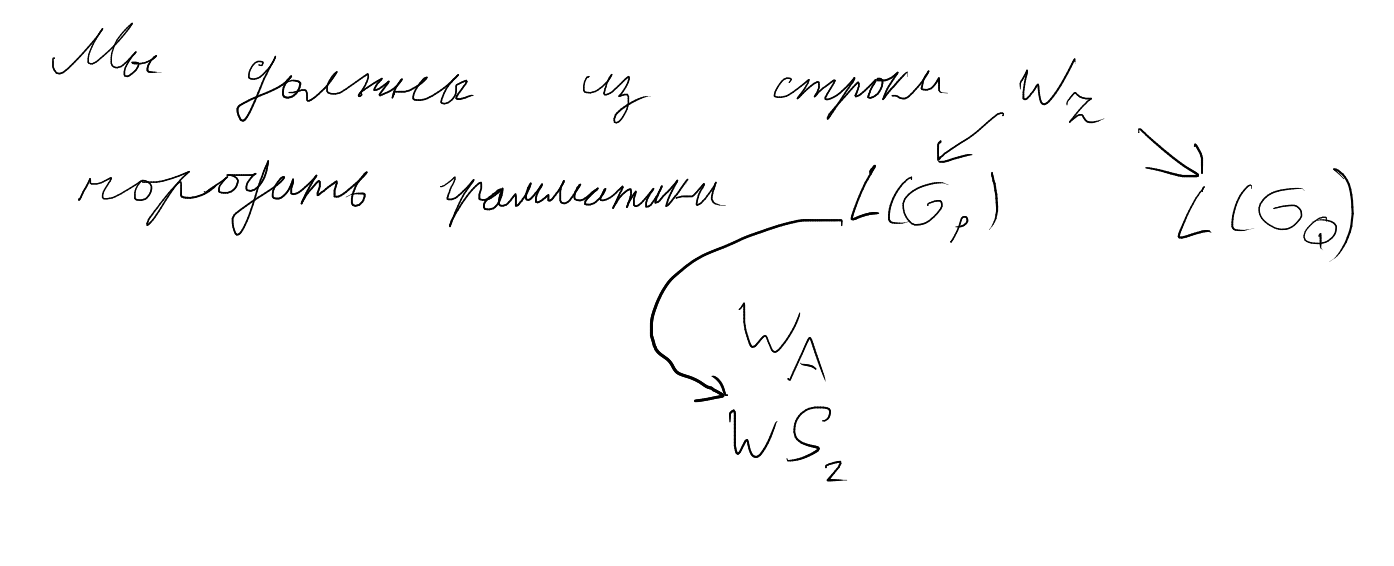 Мы должны из строки W_Z
породить грамматики L(G_P) L(G_Q)
W_A
WS_2